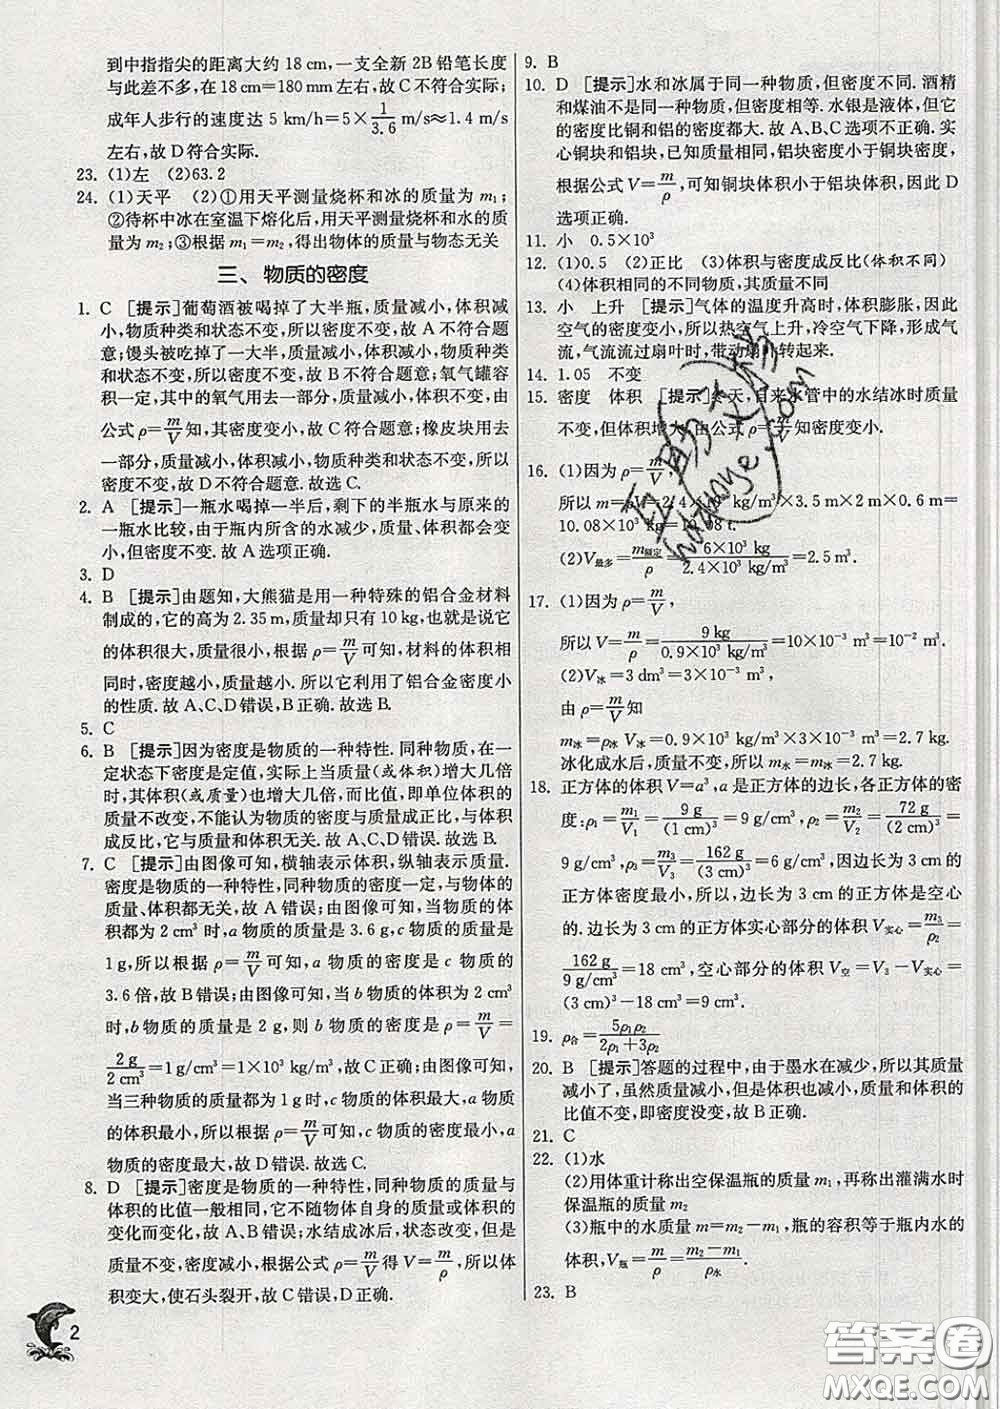 到中指指尖的距离大约 18 cm,一支全新 2B 铅笔长度
与此差不多,在 18 cm=180 mm 左右,故 C 不符合实际;
成年人步行的速度达 5 km/h=5×1/3.6 m/s≈1.4 m/s
左右,故 D 符合实际.
23. (1)左 (2)63.2
24. (1)天平 (2)①用天平测量烧杯和冰的质量为 m₁;
②待杯中冰在室温下熔化后,用天平测量烧杯和水的质
量为 m₂;③根据 m₁=m₂,得出物体的质量与物态无关
三、物质的密度
1. C [提示]葡萄酒被喝掉了大半瓶,质量减小,体积减
小,物质种类和状态不变,所以密度不变,故 A 不符合题
意;馒头被吃掉了一大半,质量减小,体积减小,物质种类
和状态不变,所以密度不变,故 B 不符合题意;氧气罐容
积一定,其中的氧气用去一部分,质量减小,体积不变,由
公式 ρ=m/V 知,其密度变小,故 C 符合题意;橡皮块用去
一部分,质量减小,体积减小,物质种类和状态不变,所以
密度不变,故 D 不符合题意.故选 C.
2. A [提示]一瓶水喝掉一半后,剩下的半瓶水与原来的
一瓶水比较,由于瓶内所含的水减少,质量、体积都会变
小,但密度不变.故 A 选项正确.
3. D
4. B [提示]由题知,大熊猫是用一种特殊的铝合金材料
制成的,它的高为 2.35 m,质量却只有 10 kg,也就是说它
的体积很大,质量很小,根据 ρ=m/V 可知,材料的体积相
同时,密度越小,质量越小.所以它利用了铝合金密度小
的性质.故 A、C、D 错误,B 正确.故选 B.
5. C
6. B [提示]因为密度是物质的一种特性.同种物质,在一
定状态下密度是定值,实际上当质量(或体积)增大几倍
时,其体积(或质量)也增大几倍,而比值,即单位体积的
质量不改变,不能认为物质的密度与质量成正比,与体积
成反比,它与质量和体积无关.故 A、C、D 错误.故选 B.
7. C [提示]由图像可知,横轴表示体积,纵轴表示质量.
密度是物质的一种特性,同种物质的密度一定,与物体的
质量、体积都无关,故 A 错误;由图像可知,当物质的体
积都为 2 cm³ 时,a 物质的质量是 3.6 g,c 物质的质量是
1 g,所以根据 ρ=m/V 可知,a 物质的密度是 c 物质的
3.6 倍,故 B 错误;由图像可知,当 b 物质的体积为 2 cm³
时,b 物质的质量是 2 g,则 b 物质的密度是 ρ=m/V=
2 g/2 cm³=1 g/cm³=1×10³ kg/m³,故 C 正确;由图像可知,
当三种物质的质量都为 1 g 时,c 物质的体积最大,a 物质
的体积最小,所以根据 ρ=m/V 可知,c 物质的密度最小,a
物质的密度最大,故 D 错误.故选 C.
8. D [提示]密度是物质的一种特性,同种物质的质量与
体积的比值一般相同,它不随物体自身的质量或体积的
变化而变化,故 A、B 错误;水结成冰后,状态改变,但是
质量不变,密度减小,根据公式 ρ=m/V 得 V=m/ρ,所以体
积变大,使石头裂开,故 C 错误,D 正确.
2
9. B
10. D [提示]水和冰属于同一种物质,但密度不同.酒精
和煤油不是同一种物质,但密度相等.水银是液体,但它
的密度比铜和铝的密度都大.故 A、B、C 选项不正确.实
心铜块和铝块,已知质量相同,铝块密度小于铜块密度,
根据公式 V=m/ρ,可知铜块体积小于铝块体积,因此 D
选项正确.
11. 小 0.5×10³
12. (1)0.5 (2)正比 (3)体积与密度成反比(体积不同)
(4)体积相同的不同物质,其质量不同
13. 小 上升 [提示]气体的温度升高时,体积膨胀,因此
空气的密度变小,所以热空气上升,冷空气下降,形成气
流,气流流过扇叶时,带动扇叶转起来.
14. 1.05 不变
15. 密度 体积 [提示]冬天,自来水管中的水结冰时质量
不变,但体积增大,由公式 ρ=m/V 知密度变小.
16. (1)因为 ρ=m/V,
所以 m=ρV=2.4×10³ kg/m³×3.5 m×2 m×0.6 m=
10.08×10³ kg=10.08 t.
(2)V最多=m额定/ρ=6×10³ kg/2.4×10³ kg/m³=2.5 m³.
17. (1)因为 ρ=m/V,
所以 V=m/ρ=9 kg/0.9×10³ kg/m³=10×10⁻³ m³=10⁻² m³.
(2)V冰=3 dm³=3×10⁻³ m³,
由 ρ=m/V 知
m冰=ρ冰 V冰=0.9×10³ kg/m³×3×10⁻³ m³=2.7 kg.
冰化成水后,质量不变,所以 m水=m冰=2.7 kg.
18. 正方体的体积 V=a³,a 是正方体的边长,各正方体的密
度:ρ₁=m₁/V₁=9 g/(1 cm)³=9 g/cm³,ρ₂=m₂/V₂=72 g/(2 cm)³=
9 g/cm³,ρ₃=m₃/V₃=162 g/(3 cm)³=6 g/cm³,因边长为 3 cm 的
正方体密度最小,所以,边长为 3 cm 的正方体是空心
的.边长为 3 cm 的正方体实心部分的体积 V实心=m₃/ρ₂=
162 g/9 g/cm³=18 cm³,空心部分的体积 V空=V₃-V实心=
(3 cm)³-18 cm³=9 cm³.
19. ρ合=5ρ₁ρ₂/2ρ₁+3ρ₂
20. B [提示]答题的过程中,由于墨水在减少,所以其质量
减小了,虽然质量减小,但是体积也减小,质量和体积的
比值不变,即密度没变,故 B 正确.
21. C
22. (1)水
(2)用体重计称出空保温瓶的质量 m₁,再称出灌满水时
保温瓶的质量 m₂
(3)瓶中的水质量 m=m₂-m₁,瓶的容积等于瓶内水的
体积,V瓶=m/ρ=m₂-m₁/ρ水.
23. B
答案圈
MXQE.COM